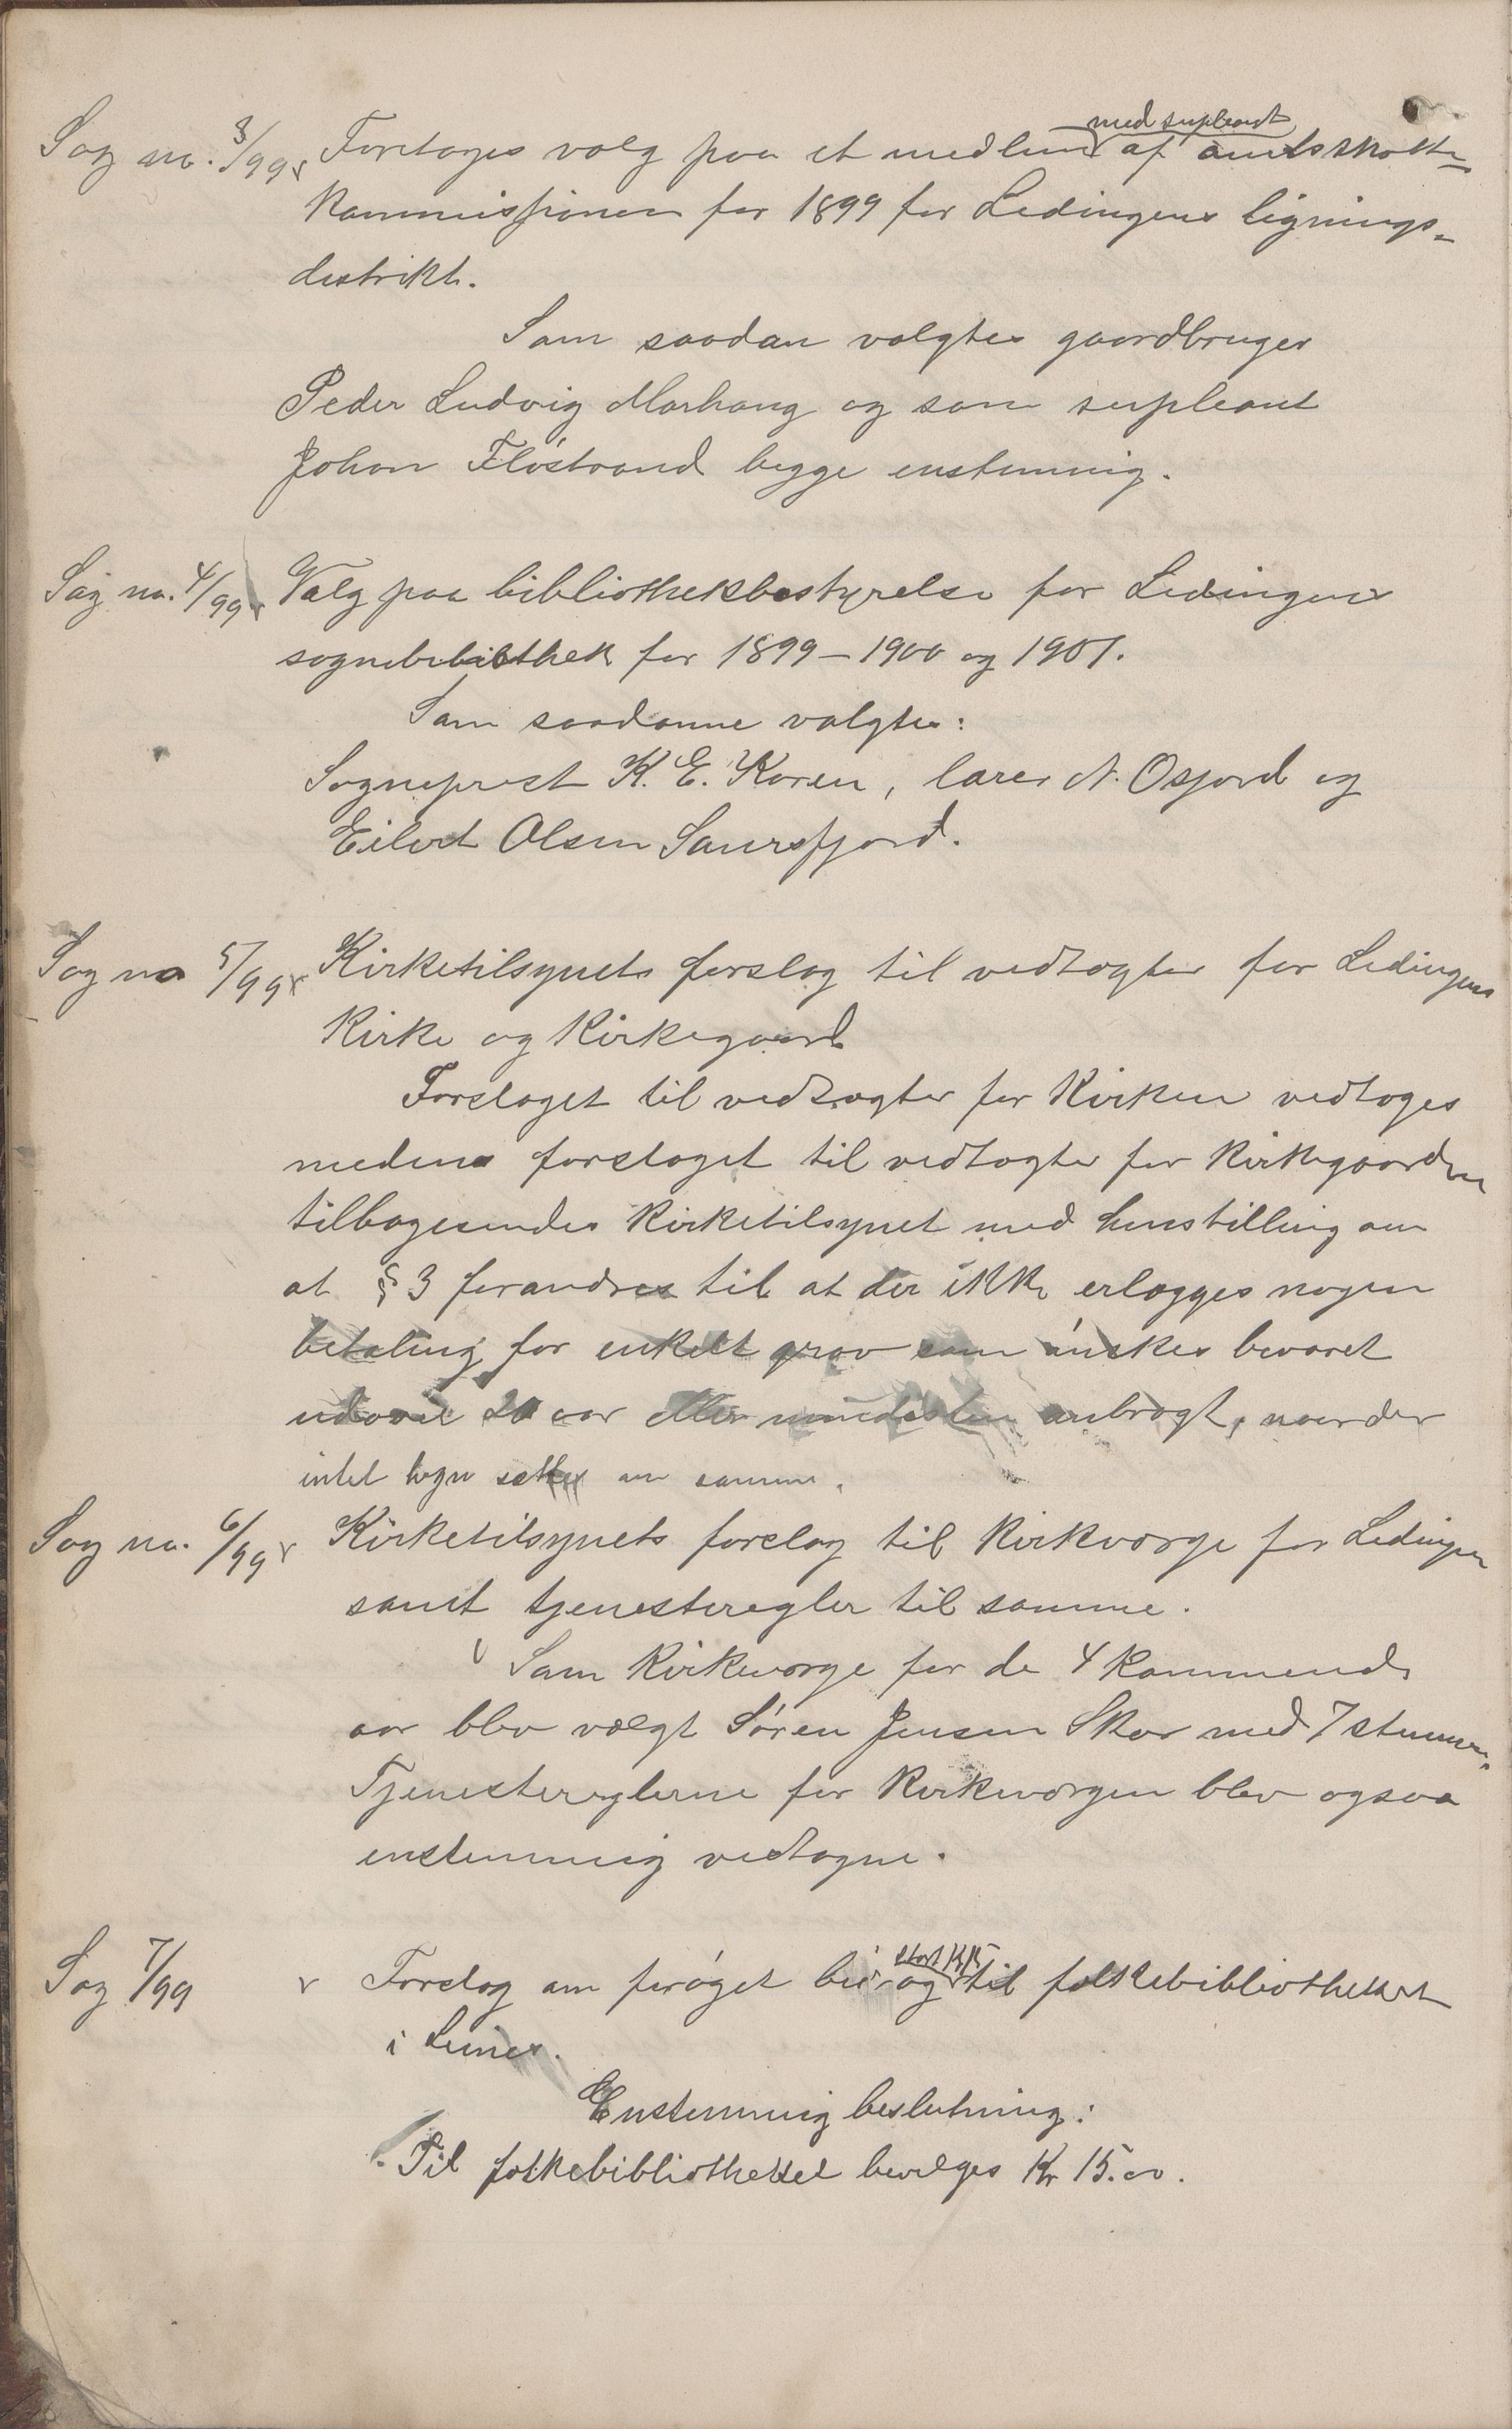 Sag no. 3/99 Foretoges valg paa et medlem med supleant af amtsskatte-
kommissionen for 1899 for Ledingens lignings-
destrikt.
Som saadan valgtes gaardbruger
Peder Ludvig Marhaug og som supleant
Johan Fløstrand begge enstemmig.
Sag no. 4/99 Valg paa bibliothekbestyrelse for Ledingens
sognebibliothek for 1899 – 1900 og 1901.
Som saadanne valgtes:
Sogneprest K. E. Koren, lærer N. Osfjord og
Eilert Olsen Saursfjord.
Sag no 5/99 Kirketilsynets forslag til vedtægter for Ledingens
Kirke og Kirkegaard
Forslaget til vedtægter for Kirken vedtoges
medens forslaget til vedtægter for Kirkegaarden
tilbagesendes Kirketilsynet med henstilling om
at § 3 forandres til at der ikke erlægges nogen
betaling for enkelt grav som ønskes bevaret
udover 20 aar eller mindesten anbragt, naar der
intet hegn sættes om samme.
Sag no. 6/99 Kirketilsynets forslag til Kirkeværge for Ledingen
samt tjenesteregler til samme.
Som Kirkeværge for de 4 kommende
aar blev valgt Søren Jensen Skar med 7 stemmer.
Tjenestereglerne for Kirkeværgen blev ogsaa
enstemmig vedtagne.
Sag 7/99 Forslag om forøget bi- og til folkebibliotheket
i Leines.
Enstemmig beslutning:
Til folkebibliotheket bevilges Kr 15.00.